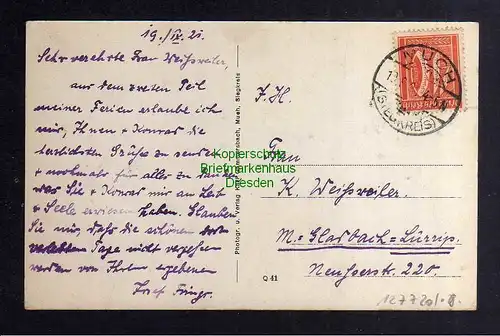 19./IX. 21.
Sehr verehrte Frau Weihsweiler,
aus dem zweiten Teil
meiner Ferien erlaube ich
mir, Ihnen + Konrad die
herzlichsten Grüße zu senden
+ nochmals für alles zu danken
was Sie + Konrad mir an Leib
+ Seele erwiesen haben. Glauben
Sie mir, daß die schönen dort
verlebten Tage nicht vergessen
werden von Ihrem ergebenen
Josef
Photogr. u. Verlag Much, Siegkreis
MUCH
(SIEGKREIS)
Frau
K. Weihsweiler.
M.-Gladbach-Lürrip.
Neußerstr. 220.
Q 41
Kopierschutz
Briefmarkenhaus
Dresden